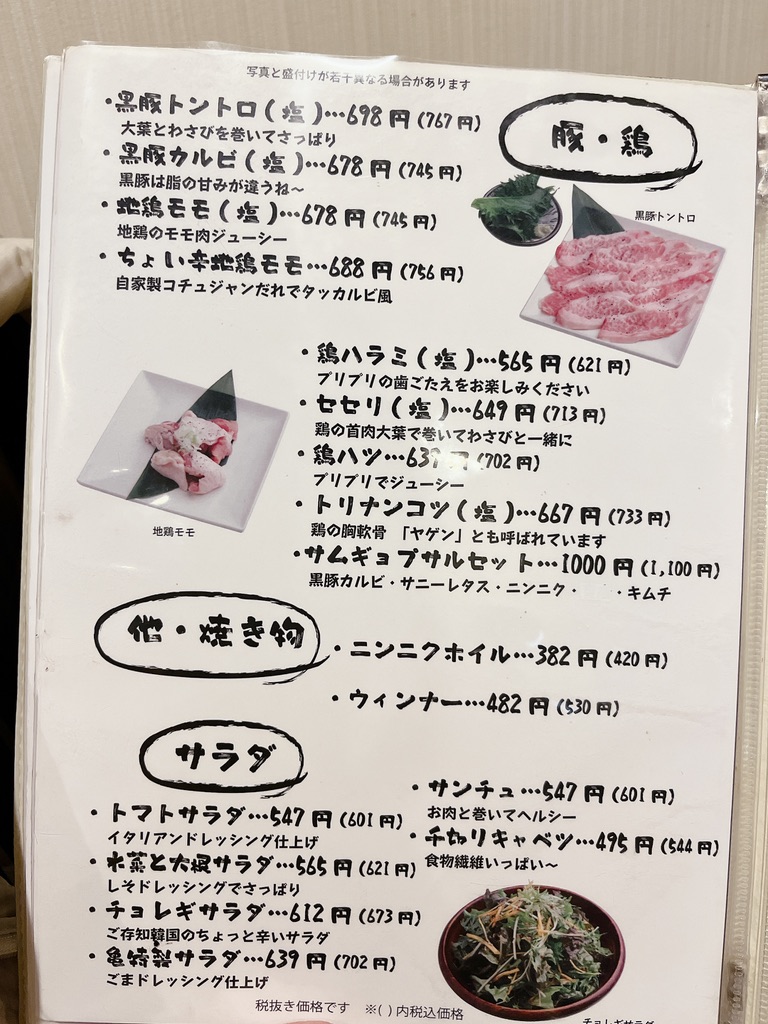 写真と盛付けが若干異なる場合があります
豚・鶏
・黒豚トントロ(塩)…698円(767円)
大葉とわさびを巻いてさっぱり
・黒豚カルビ(塩)…678円(745円)
黒豚は脂の甘みが違うね〜
・地鶏モモ(塩)…678円(745円)
地鶏のモモ肉ジューシー
・ちょい辛地鶏モモ…688円(756円)
自家製コチュジャンだれでタッカルビ風
黒豚トントロ
・鶏ハラミ(塩)…565円(621円)
プリプリの歯ごたえをお楽しみください
・セセリ(塩)…649円(713円)
鶏の首肉大葉で巻いてわさびと一緒に
・鶏ハツ…639円(702円)
プリプリでジューシー
・トリナンコツ(塩)…667円(733円)
鶏の胸軟骨 「ヤゲン」とも呼ばれています
・サムギョプサルセット…1000円(1,100円)
黒豚カルビ・サニーレタス・ニンニク・ ・キムチ
地鶏モモ
他・焼き物
・ニンニクホイル…382円(420円)
・ウィンナー…482円(530円)
サラダ
・トマトサラダ…547円(601円)
イタリアンドレッシング仕上げ
・水菜と大根サラダ…565円(621円)
しそドレッシングでさっぱり
・チョレギサラダ…612円(673円)
ご存知韓国のちょっと辛いサラダ
・亀特製サラダ…639円(702円)
ごまドレッシング仕上げ
・サンチュ…547円(601円)
お肉と巻いてヘルシー
・千切りキャベツ…495円(544円)
食物繊維いっぱい〜
チョレギサラダ
税抜き価格です ※( )内税込価格